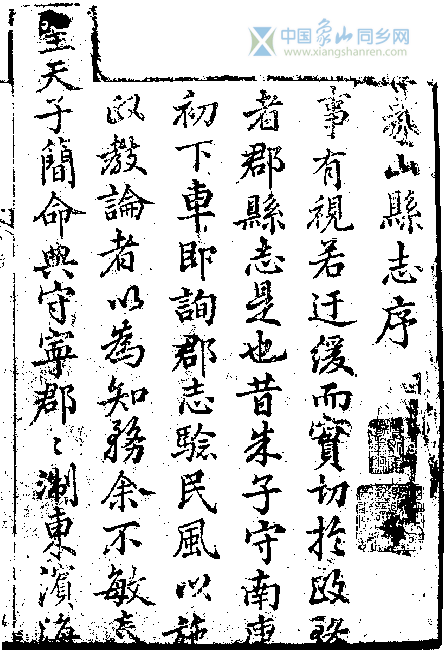 中国象山同乡网
www.xiangshanren.com
象山縣志序
事有視若迂緩而實切於政務
者郡縣志是也昔朱子守南康
初下車即詢郡志驗民風以施
政教論者以為知務余不敏
聖天子簡命典守寧郡〻瀕東濱海